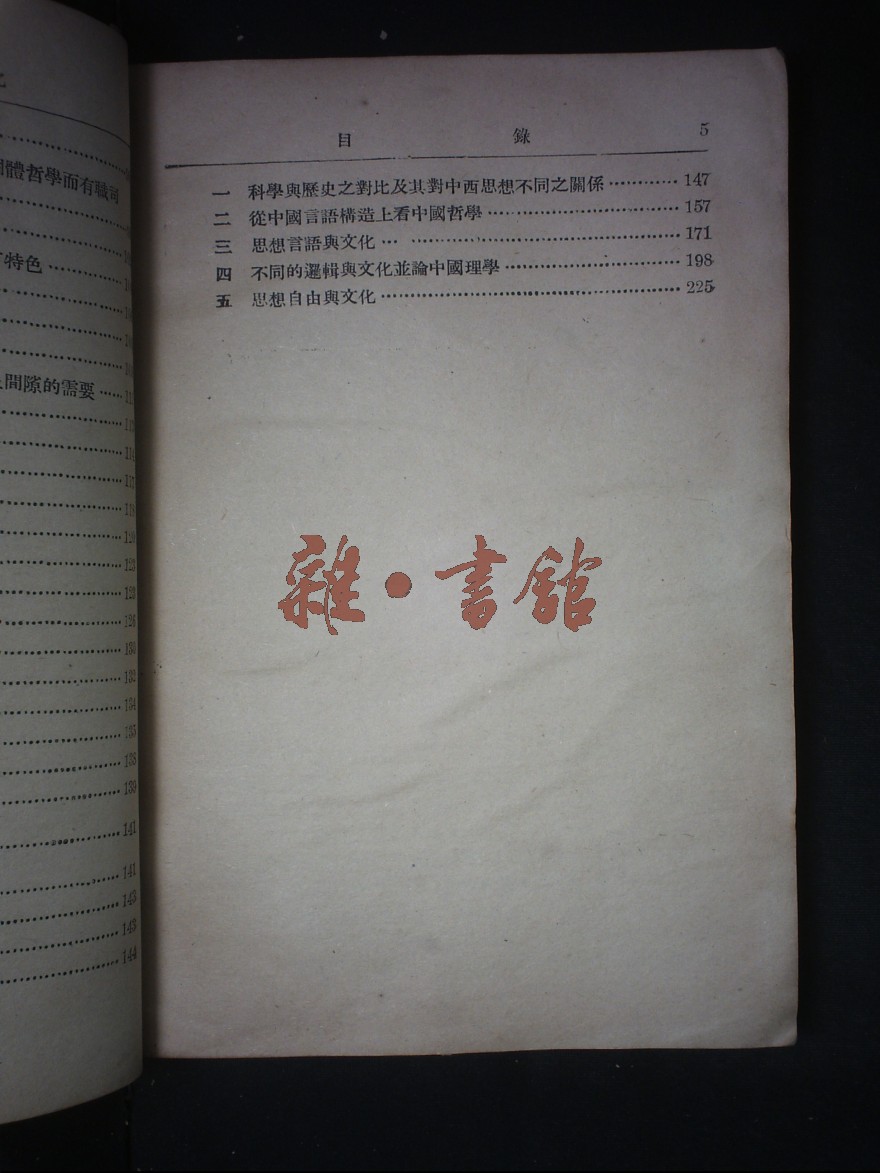 體哲學而有職司
特色
間隙的需要
114
117
118
120
123
123
126
130
132
134
135
138
139
141
141
143
143
144
目 錄 5
一 科學與歷史之對比及其對中西思想不同之關係…………147
二 從中國言語構造上看中國哲學…………157
三 思想言語與文化… …………171
四 不同的邏輯與文化並論中國理學…………198
五 思想自由與文化…………225
雜·書館